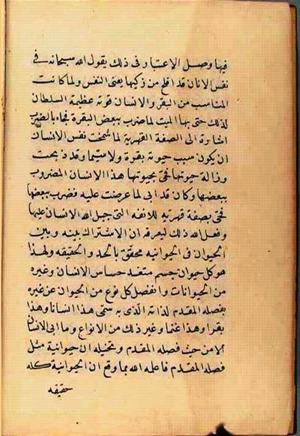 فيها وصل الاعتبار فى ذلك يقول الله سبحانه فى
نفس الانسان قد افلح من زكيها يعنى النفس ولما كانت
المناسب من البقر والانسان قوته عظيمة السلطان
لذلك حتى بها الميت لما ضرب ببعض البقرة فجاء بالضرب
اشارة الى الصفة القهرية لما شمخت نفس الانسان
ان يكون سبب حيوته بقرة ولا سيما وقد ذبحت
وزالة حيوتها فحى بحيوتها هذا الانسان المضروب
ببعضها وكان قد ابى لما عرضت عليه فضرب ببعضها
فحى بصفة قهرية للانفه التى جبل الله الانسان عليها
وفعل الله ذلك ليعرفه ان الاشتراك بينه وبين
الحيوان فى الحيوانية محقق بالحد والحقيقه ولهذا
هو كل حيوان جسم متغذ حساس الانسان وغيره
من الحيوانات وانفصل كل نوع من الحيوان عن غيره
بفصله المقدم لذاته الذى به سمى هذا انسانا وهذا
بقرا وهذا غنما وغير ذلك من الانواع وما ابى الانسان
الا من حيث فصله المقدم وتخيله ان حيوانية مثل
فصله المقدم فاعلمه الله بما وقع ان الحيوانية كله
حقيقه